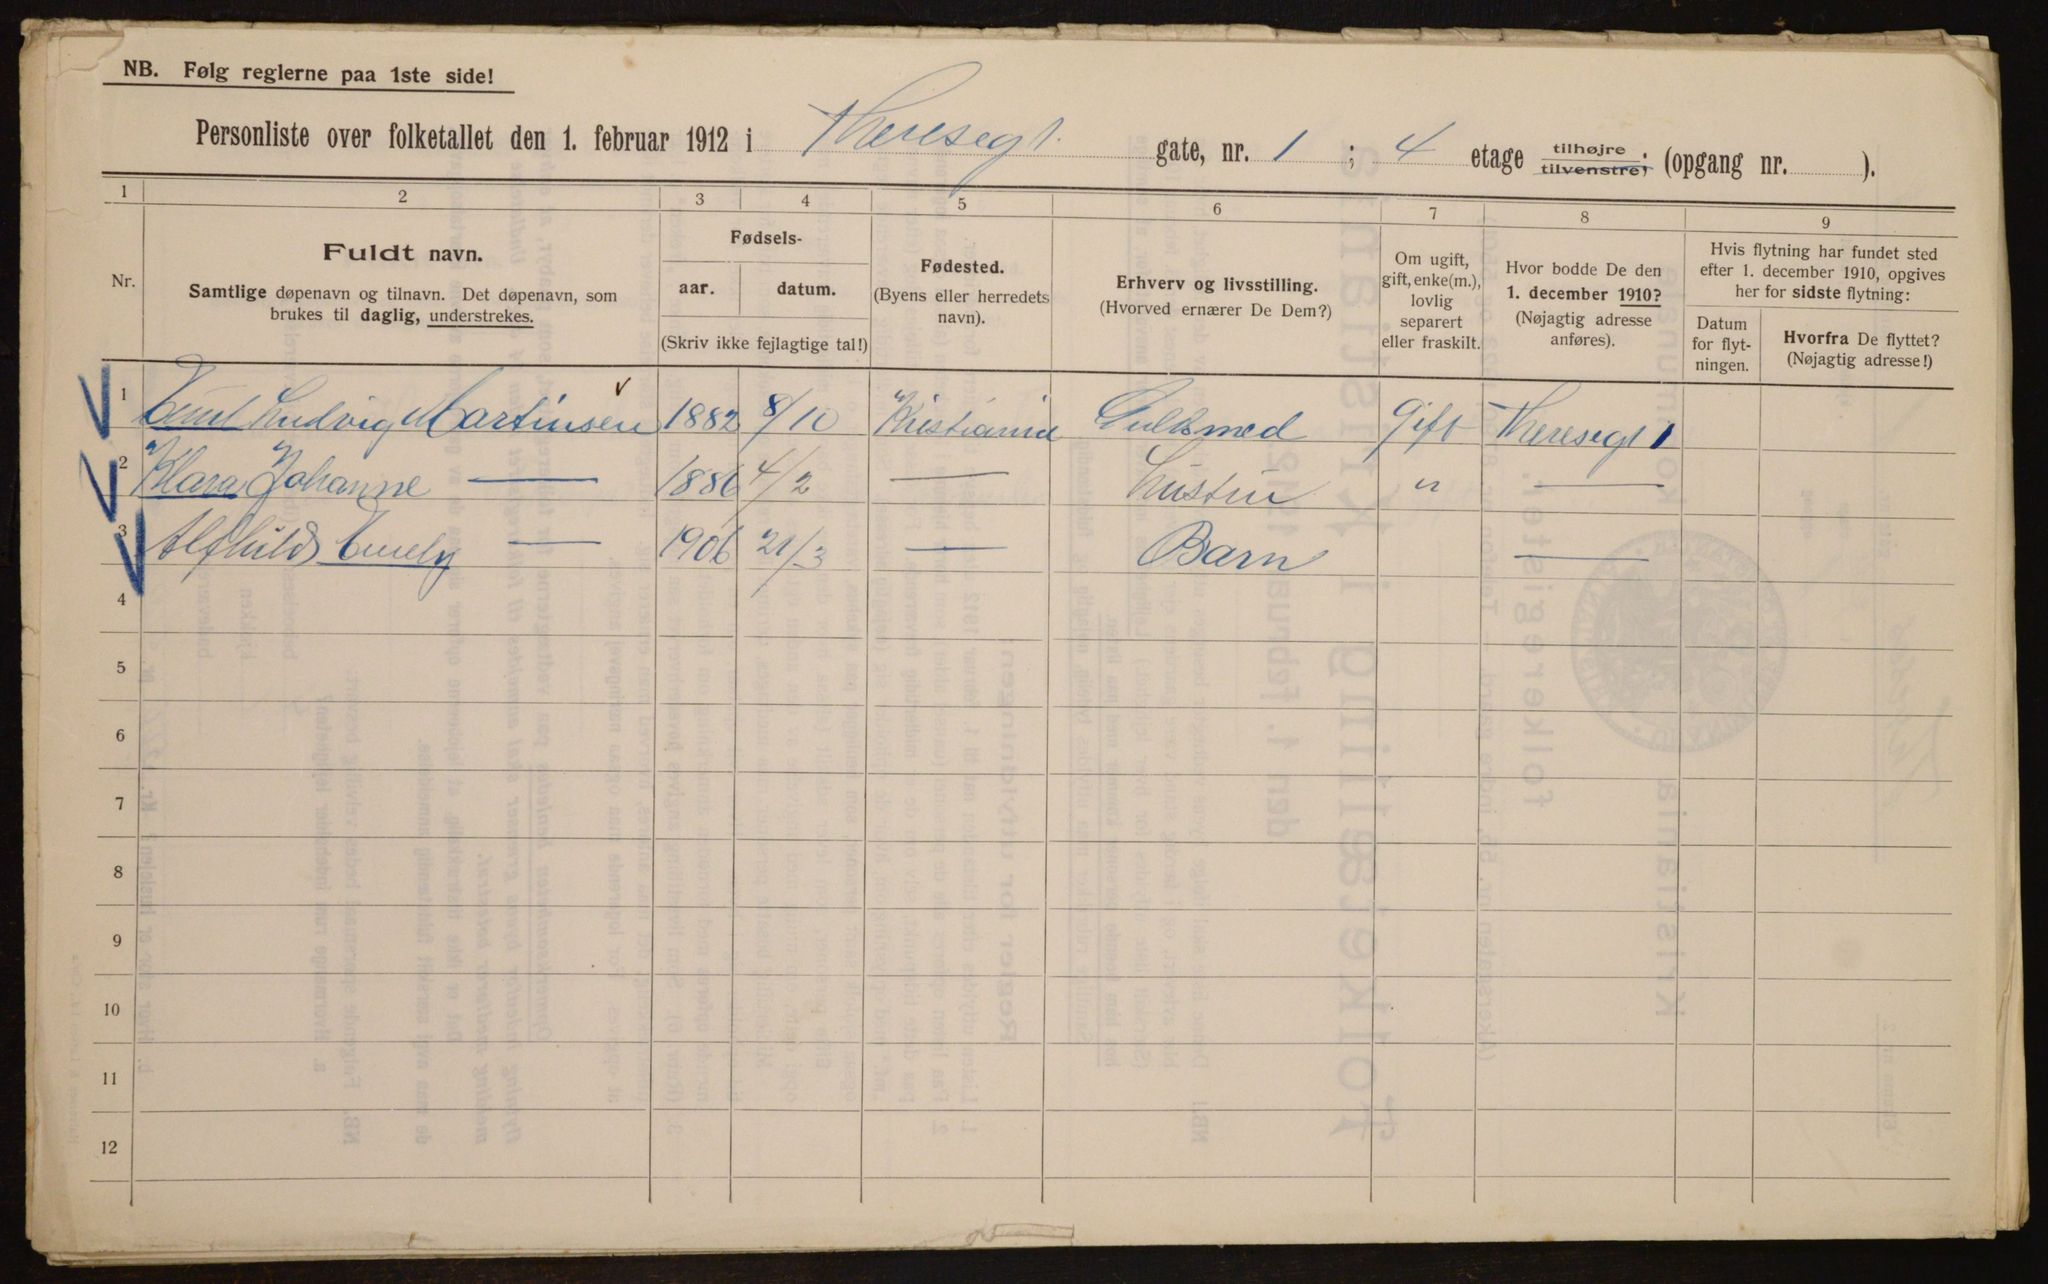 NB. Følg reglerne paa 1ste side!
Personliste over folketallet den 1. februar 1912 i Theresegt. gate, nr. 1 ; 4 etage tilhøjre tilvenstre; (opgang nr. ).
1 2 3 4 5 6 7 8 9
Nr.
Fuldt navn.
Samtlige døpenavn og tilnavn. Det døpenavn, som
brukes til daglig, understrekes.
Fødsels-
aar. datum.
(Skriv ikke fejlagtige tal!)
Fødested.
(Byens eller herredets
navn).
Erhverv og livsstilling.
(Hvorved ernærer De Dem?)
Om ugift,
gift, enke(m.),
lovlig
separert
eller fraskilt.
Hvor bodde De den
1. december 1910?
(Nøjagtig adresse
anføres).
Hvis flytning har fundet sted
efter 1. december 1910, opgives
her for sidste flytning:
Datum
for flyt-
ningen.
Hvorfra De flyttet?
(Nøjagtig adresse!)
1 Ludvig Martinsen 1882 8/10 Kristiania Gulksmed Gift Theresegt 1
2 Klara Johanne — 1886 4/2 — Hustru " —
3 Alfhild Emely — 1906 21/3 — Barn —
4
5
6
7
8
9
10
11
12